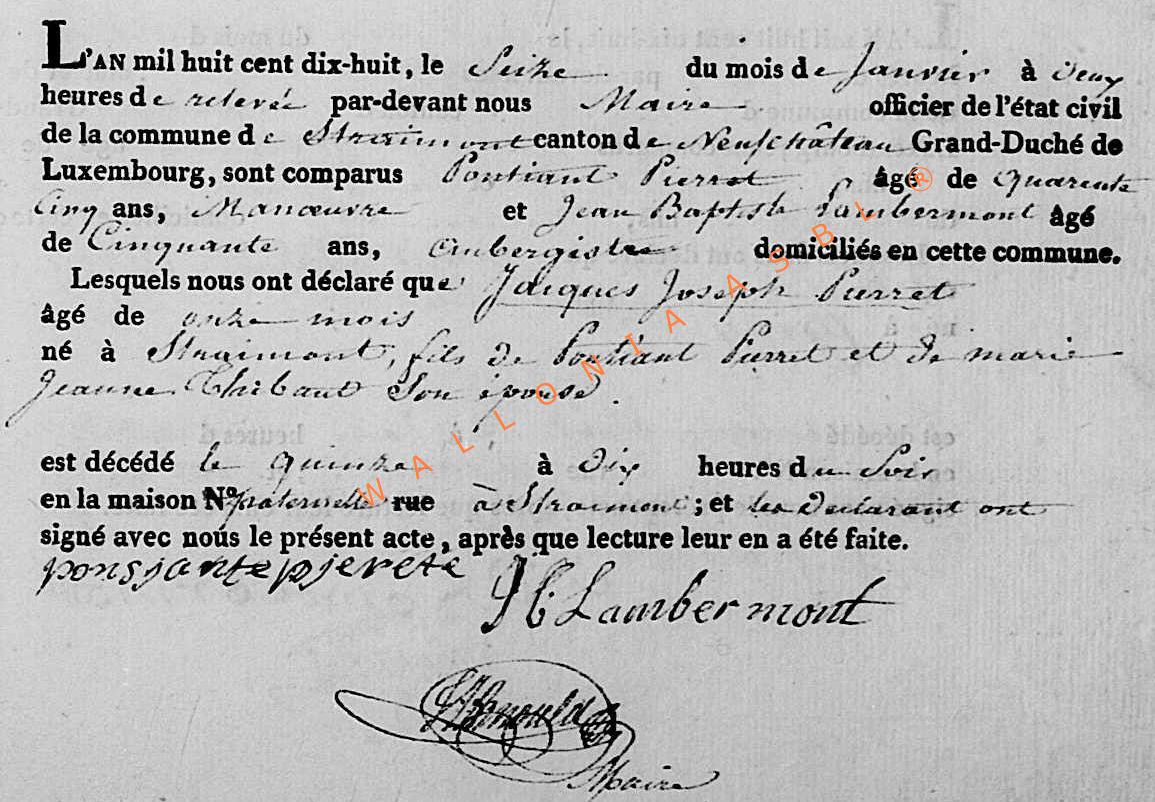 L'AN mil huit cent dix-huit, le Seize du mois de Janvier à deux
heures de relevée par-devant nous Maire officier de l'état civil
de la commune de Straimont canton de Neufchâteau Grand-Duché de
Luxembourg, sont comparus Pontiant Pierret âgé de quarente
Cinq ans, Manœuvre et Jean Baptiste Lambermont âgé
de Cinquante ans, aubergiste domiciliés en cette commune.
Lesquels nous ont déclaré que Jacques Joseph Pierret
âgé de onze mois
né à Straimont, fils de Pontiant Pierret et de marie
Jeanne Thibaut Son épouse.
est décédé le quinze à dix heures du Soir
en la maison N° paternelle rue à Straimont ; et les declarant ont
signé avec nous le présent acte, après que lecture leur en a été faite.
ponsjantepjerete
J B Lambermont
Maire
WALLONIA ASBL ®